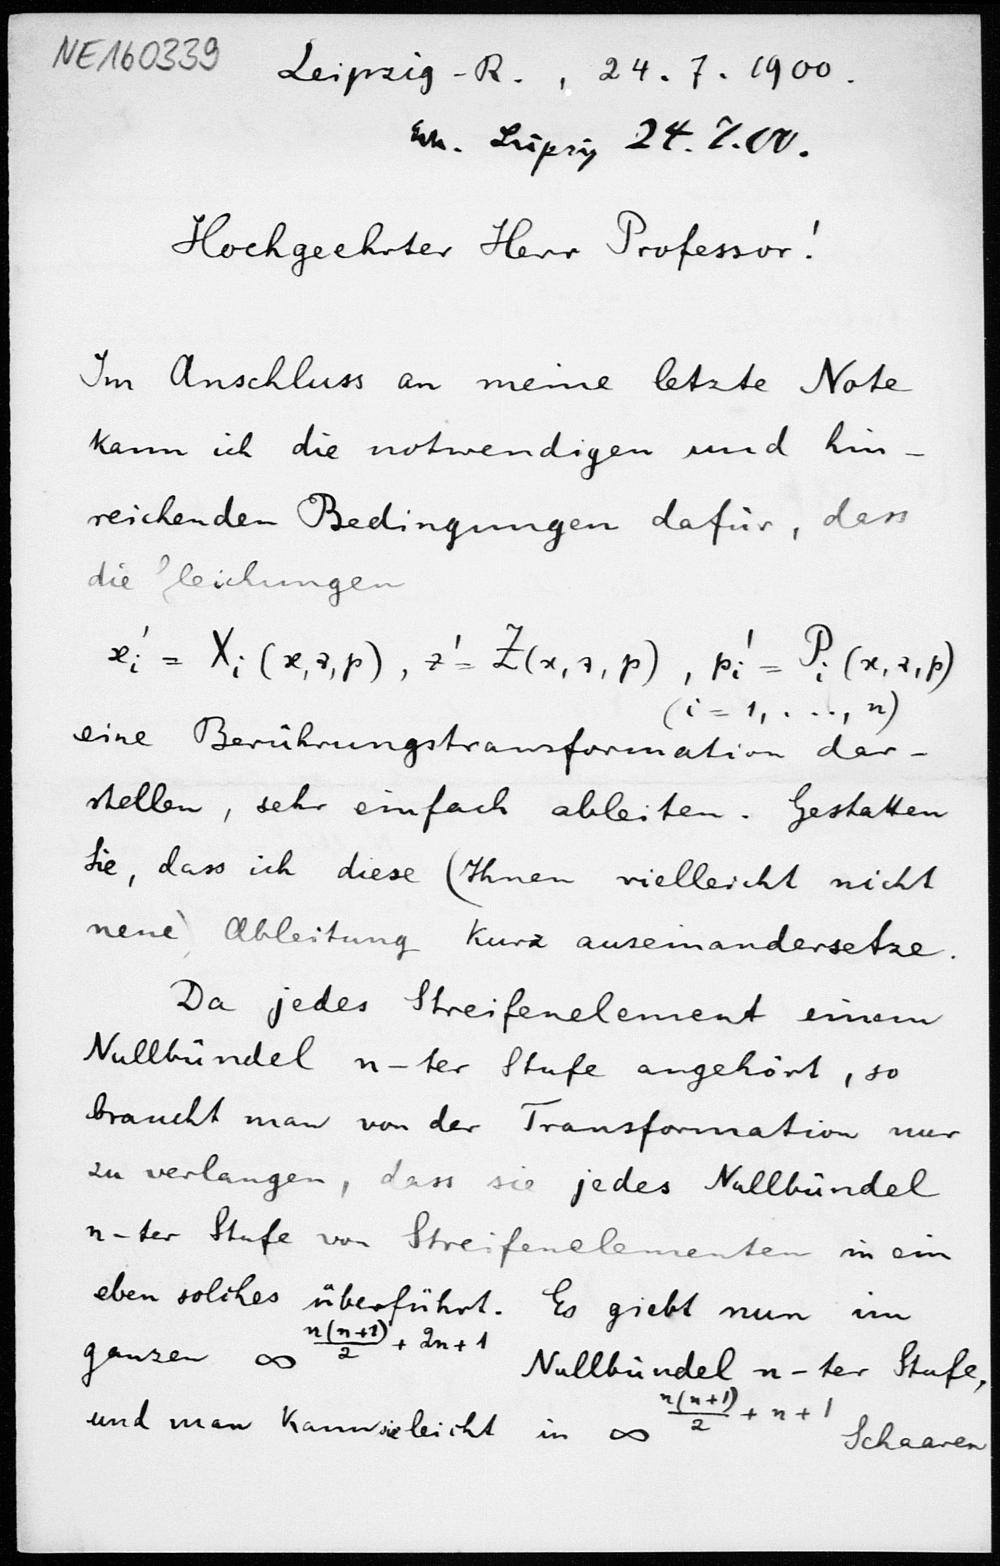 NE160339
Leipzig-R., 24.7.1900.
Erh. Leipzig 24.7.00.
Hochgeehrter Herr Professor!
Im Anschluss an meine letzte Note
kann ich die notwendigen und hin-
reichenden Bedingungen dafür, dass
die Gleichungen
x_i' = X_i (x,z,p), z' = Z(x,z,p), p_i' = P_i (x,z,p)
(i = 1, . . ., n)
eine Berührungstransformation dar-
stellen, sehr einfach ableiten. Gestatten
Sie, dass ich diese (Ihnen vielleicht nicht
neue) Ableitung kurz auseinandersetze.
Da jedes Streifenelement einem
Nullbündel n-ter Stufe angehört, so
braucht man von der Transformation nur
zu verlangen, dass sie jedes Nullbündel
n-ter Stufe von Streifenelementen in ein
eben solches überführt. Es giebt nun im
ganzen ∞^{n(n+1)/2 + 2n+1} Nullbündel n-ter Stufe,
und man kann sie leicht in ∞^{n(n+1)/2 + n+1} Schaaren